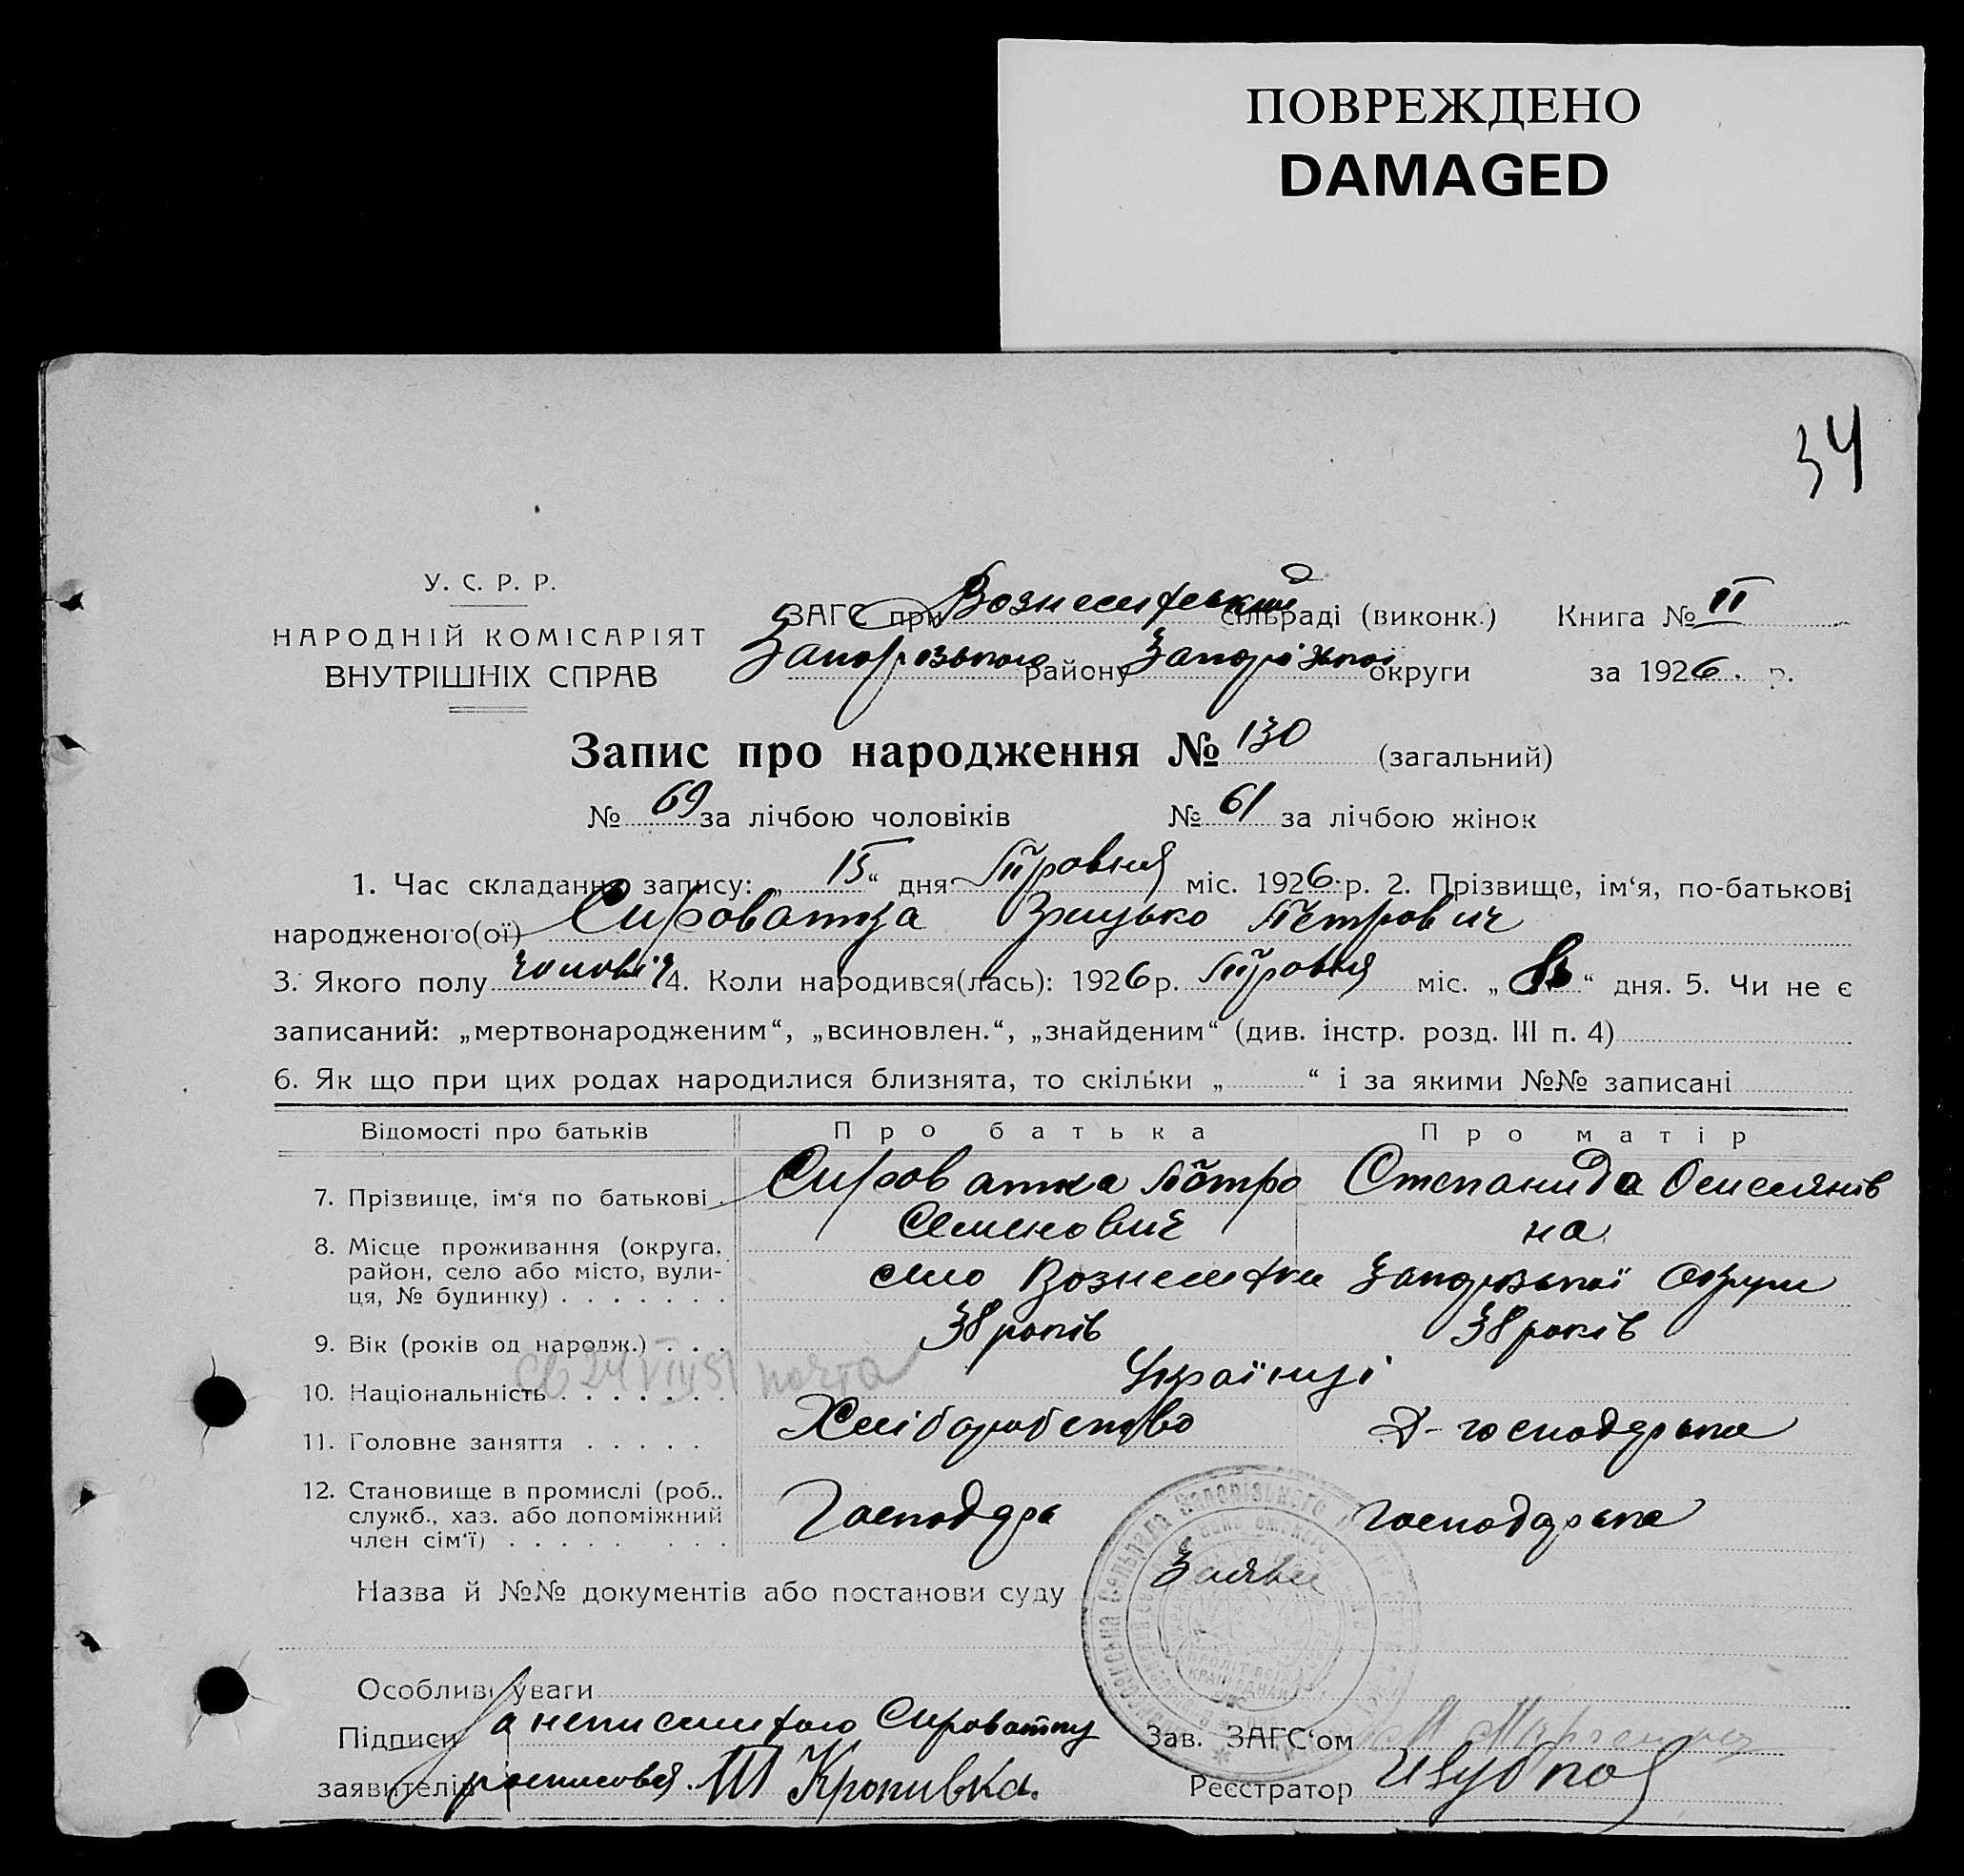 ПОВРЕЖДЕНО
DAMAGED
34
У. С. Р. Р.
НАРОДНІЙ КОМІСАРІЯТ
ВНУТРІШНІХ СПРАВ
ЗАГС при Вознесенській сільраді (виконк.) Книга № II
Запорізького району Запорізької округи за 1926. р.
Запис про народження № 130 (загальний)
№ 69 за лічбою чоловіків № 61 за лічбою жінок
1. Час складання запису: „ 15 “ дня Травня міс. 1926 р. 2. Прізвище, ім‘я, по-батькові
народженого(ої) Сироватка Грицько Петрович
3. Якого полу чоловіч 4. Коли народився(лась): 1926 р. Травня міс. „ “ дня. 5. Чи не є
записаний: „мертвонародженим“, „всиновлен.“, „знайденим“ (див. інстр. розд. III п. 4)
6. Як що при цих родах народилися близнята, то скільки „ “ і за якими №№ записані
Відомості про батьків Про батька Про матір
7. Прізвище, ім‘я по батькові Сироватка Петро Степанида
Семенович на
8. Місце проживання (округа, район, село або місто, вулиця, № будинку) село Вознесенка Запорізької Округи
9. Вік (років од народж.) 38 років 38 років
10. Національність Українці
11. Головне заняття Хліборобство Д-господарка
12. Становище в промислі (роб., служб., хаз. або допоміжний член сім‘ї) Господарь Господарка
Назва й №№ документів або постанови суду Заяви
Особливі уваги
Підписи а неписьменого Сироватку
заявителів росписався Ш Кропивка.
Зав. ЗАГС‘ом
Реєстратор